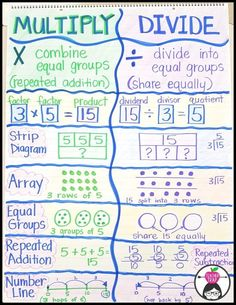 MULTIPLY
DIVIDE
X combine
equal groups
(repeated addition)
÷ divide into
equal groups
(share equally)
factor factor product
3 x 5 = 15
dividend divisor quotient
15 ÷ 3 = 5
Strip
Diagram
5 5 5
?
?
? ? ?
5
3 15
Array
3 rows of 5
15 split into 3 rows
5
3 15
Equal
Groups
3 groups of 5
share 15 equally
Repeated
Addition
5 + 5 + 5 =
15
15 10 5
5 5 5
10 5 0
Repeated
Subtraction
Number
Line